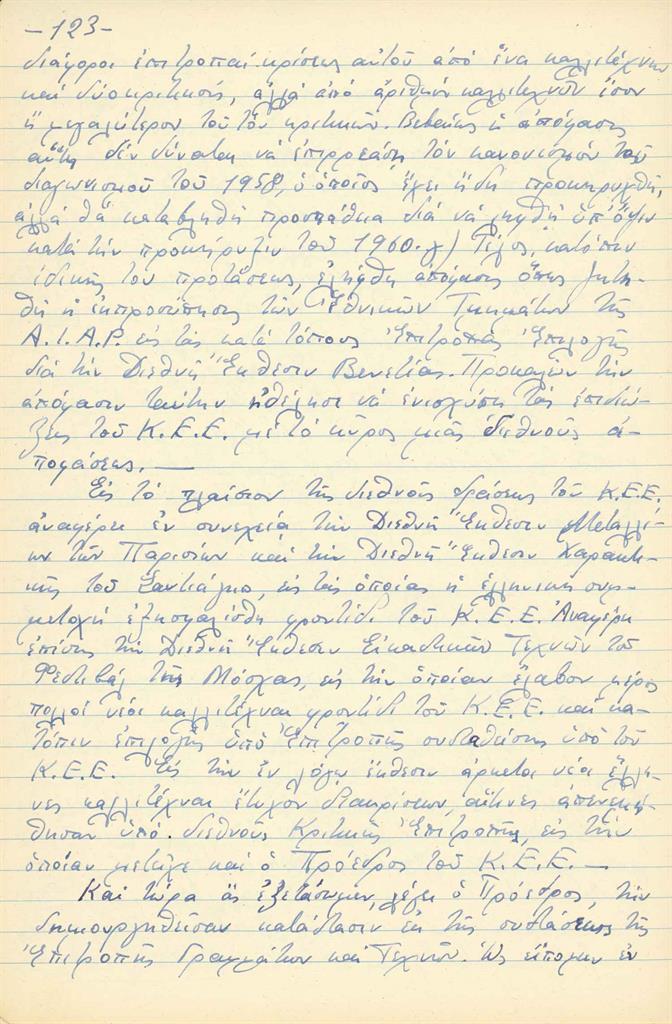 -123-
διάφοροι ἐπιτροπαί κρίσεως αὐτοῦ ἀπό ἕνα καλλιτέχνην
καί δύο κριτικούς, ἀλλά ἀπό ἀριθμόν καλλιτεχνῶν ἴσον
ἤ μεγαλύτερον τοῦ τῶν κριτικῶν. Βεβαίως ἡ ἀπόφασις
αὕτη δέν δύναται νά ἐπηρρεάσῃ τόν κανονισμόν τοῦ
διαγωνισμοῦ τοῦ 1958, ὁ ὁποῖος ἔχει ἤδη προκηρυχθῆ,
ἀλλά θά καταβληθῆ προσπάθεια διά νά ληφθῆ ὑπ' ὄψιν
κατά τήν προκήρυξιν τοῦ 1960. γ) Τέλος, κατόπιν
ἰδικῆς του προτάσεως, ἐλήφθη ἀπόφασις ὅπως ζητη-
θῆ ἡ ἐκπροσώπησις τῶν Ἐθνικῶν Τμημάτων τῆς
A.I.A.P. εἰς τάς κατά τόπους Ἐπιτροπάς Ἐπιλογῆς
διά τήν Διεθνῆ Ἔκθεσιν Βενετίας. Προκαλῶν τήν
ἀπόφασιν ταύτην ἠθέλησε νά ἐνισχύσῃ τάς ἐπιδιώ-
ξεις τοῦ Κ.Ε.Ε. μέ τό κῦρος μιᾶς διεθνοῦς ἀ-
ποφάσεως. —
Εἰς τό πλαίσιον τῆς διεθνοῦς δράσεως τοῦ Κ.Ε.Ε.
ἀναφέρει ἐν συνεχείᾳ τήν Διεθνῆ Ἔκθεσιν Μεταλλί-
ων τῶν Παρισίων καί τήν Διεθνῆ Ἔκθεσιν Χαρακτι-
κῆς τοῦ Σαντιάγκο, εἰς τάς ὁποίας ἡ ἑλληνική συμ-
μετοχή ἐξησφαλίσθη φροντίδι τοῦ Κ.Ε.Ε. Ἀναφέρει
ἐπίσης τήν Διεθνῆ Ἔκθεσιν Εἰκαστικῶν Τεχνῶν τοῦ
Φεστιβάλ τῆς Μόσχας, εἰς τήν ὁποίαν ἔλαβον μέρος
πολλοί νέοι καλλιτέχναι φροντίδι τοῦ Κ.Ε.Ε. καί κα-
τόπιν ἐπιλογῆς ὑπό Ἐπιτροπῆς συσταθείσης ὑπό τοῦ
Κ.Ε.Ε. Εἰς τήν ἐν λόγῳ ἔκθεσιν ἀρκετοί νέοι ἕλλη-
νες καλλιτέχναι ἔτυχον διακρίσεων, αἵτινες ἀπενεμή-
θησαν ὑπό διεθνοῦς Κριτικῆς Ἐπιτροπῆς, εἰς τήν
ὁποίαν μετεῖχε καί ὁ Πρόεδρος τοῦ Κ.Ε.Ε. —
Καί τώρα ἄς ἐξετάσωμεν, λέγει ὁ Πρόεδρος, τήν
δημιουργηθεῖσαν κατάστασιν ἐκ τῆς συστάσεως τῆς
Ἐπιτροπῆς Γραμμάτων καί Τεχνῶν. Ὡς εἴπομεν ἐν